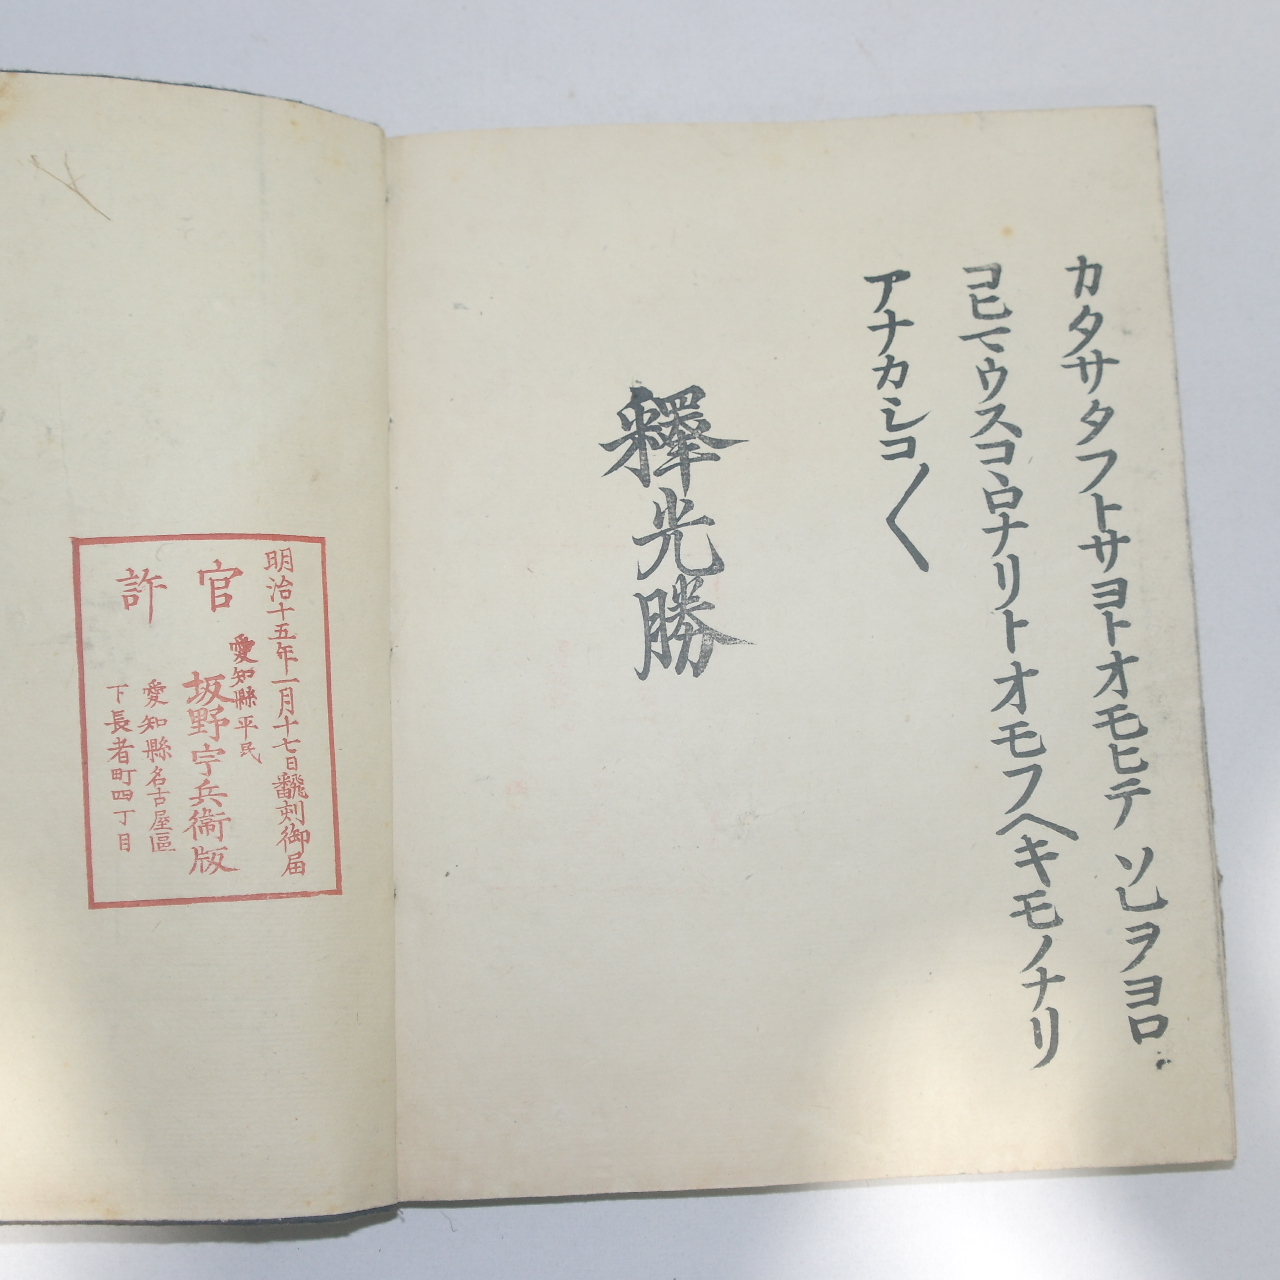 カタサタフトサヨトオモヒテソレヲヨロ
コヒマウスコヽロナリトオモフヘキモノナリ
アナカシコ〱
釋光勝
明治十五年一月十七日翻刻御届
官許
愛知縣平民
坂野宇兵衞版
愛知縣名古屋區
下長者町四丁目